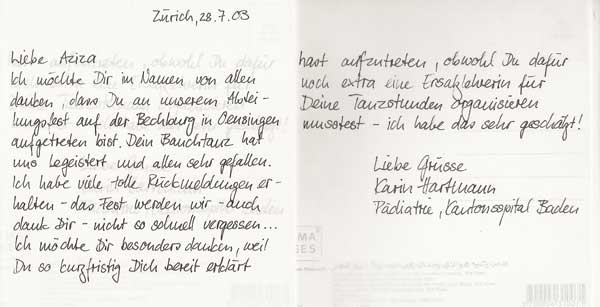 Zürich, 28.7.03
Liebe Aziza
Ich möchte Dir im Namen von allen
danken, dass Du an unserem Abtei-
lungsfest auf der Bechburg in Oensingen
aufgetreten bist. Dein Bauchtanz hat
uns begeistert und allen sehr gefallen.
Ich habe viele tolle Rückmeldungen er-
halten - das Fest werden wir - auch
dank Dir - nicht so schnell vergessen...
Ich möchte Dir besonders danken, weil
Du so kurzfristig Dich bereit erklärt
hast aufzutreten, obwohl Du dafür
noch extra eine Ersatzlehrerin für
Deine Tanzstunden organisieren
musstest - ich habe das sehr geschätzt!
Liebe Grüsse
Karin Hartmann
Pädiatrie, Kantonsspital Baden